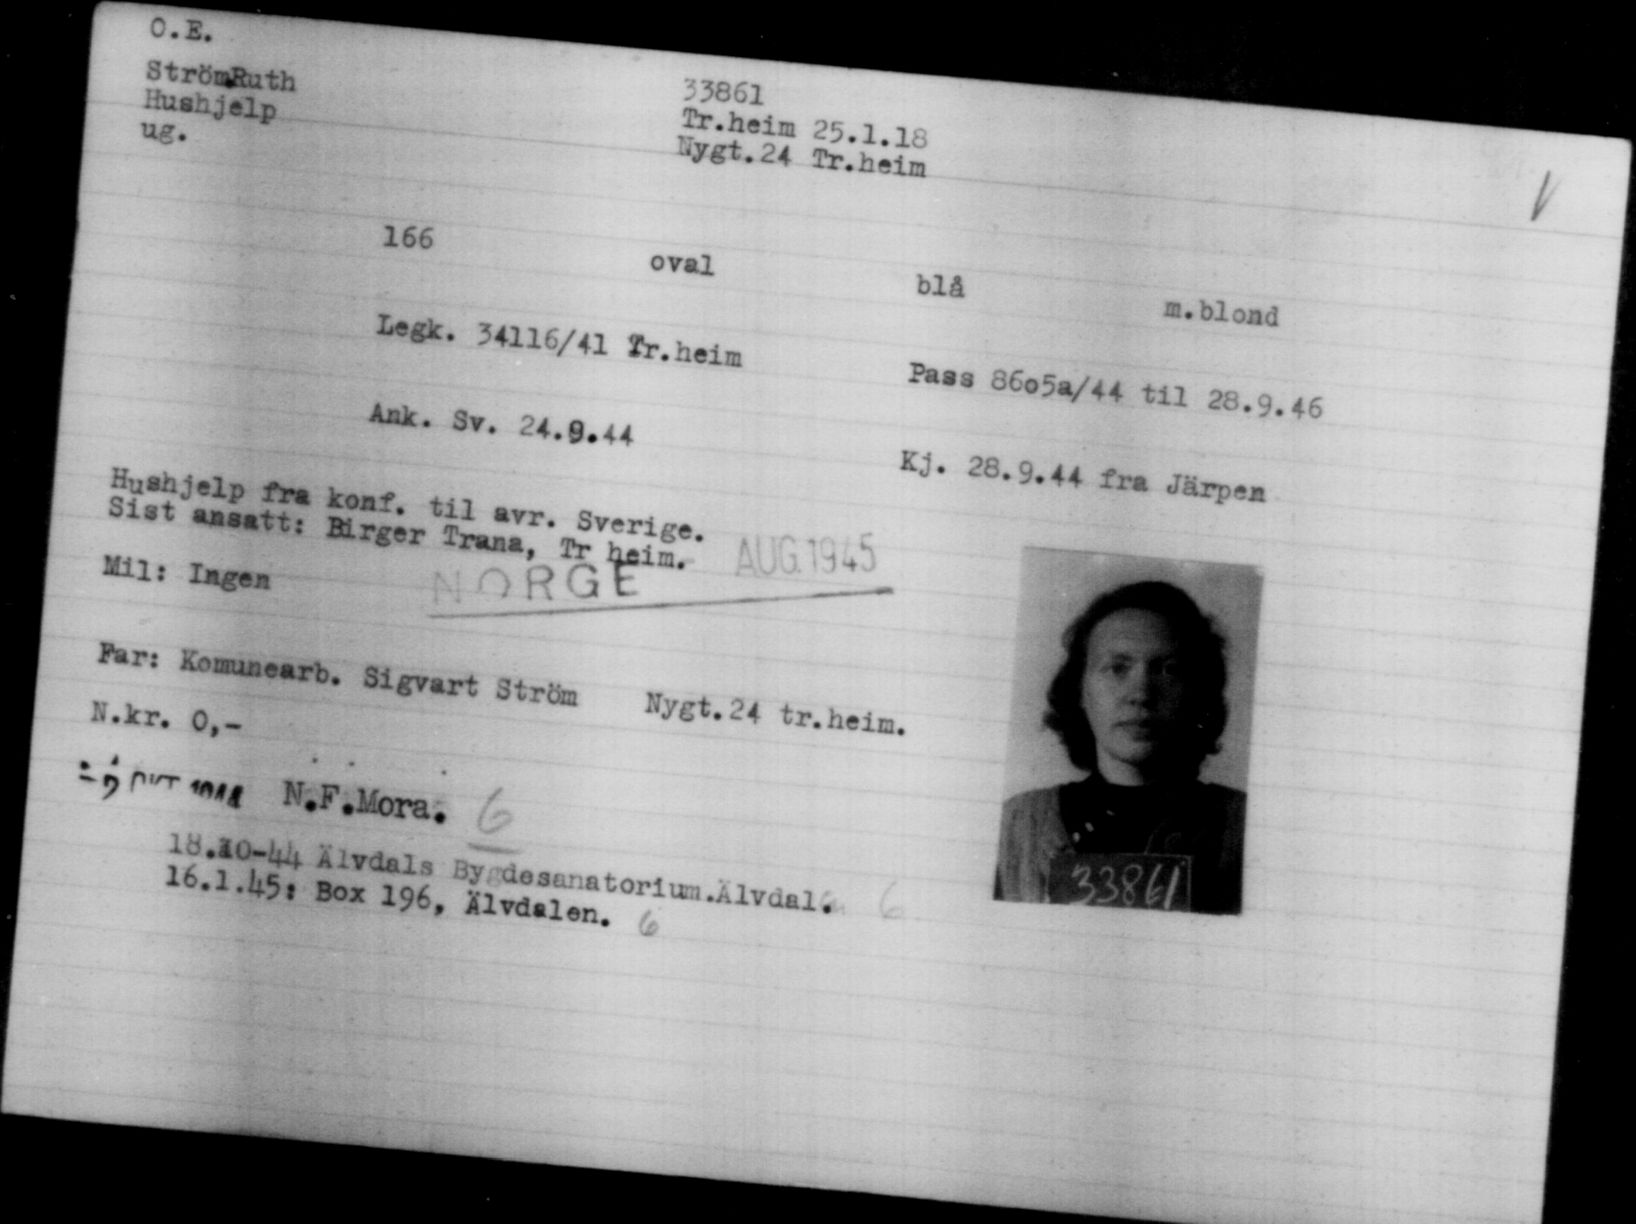 O.E.
Ström Ruth 33861
Hushjelp Tr.heim 25.1.18
ug. Nygt.24 Tr.heim
166 oval blå m.blond
Legk. 34116/41 Tr.heim Pass 8605a/44 til 28.9.46
Ank. Sv. 24.9.44 Kj. 28.9.44 fra Järpen
Hushjelp fra konf. til avr. Sverige.
Sist ansatt: Birger Trana, Tr heim.
AUG.1945
Mil: Ingen NORGE
Far: Komunearb. Sigvart Ström Nygt.24 tr.heim.
N.kr. 0,-
OKT 1944 N.F.Mora. 6
18.10-44 Älvdals Bygdesanatorium.Älvdal. 6
16.1.45: Box 196, Älvdalen. 6
33861